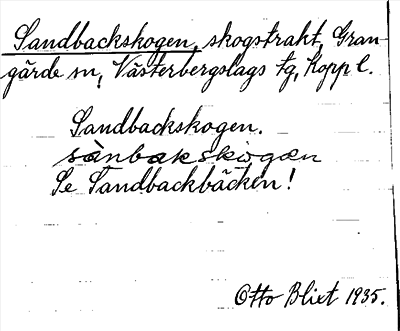 Sandbackskogen, skogstrakt, Gran-
gärde sn, Västerbergslags tg, Kopp l.
Sandbackskogen.
sànbakskògæn
Se Sandbackbäcken!
Otto Blixt 1935.